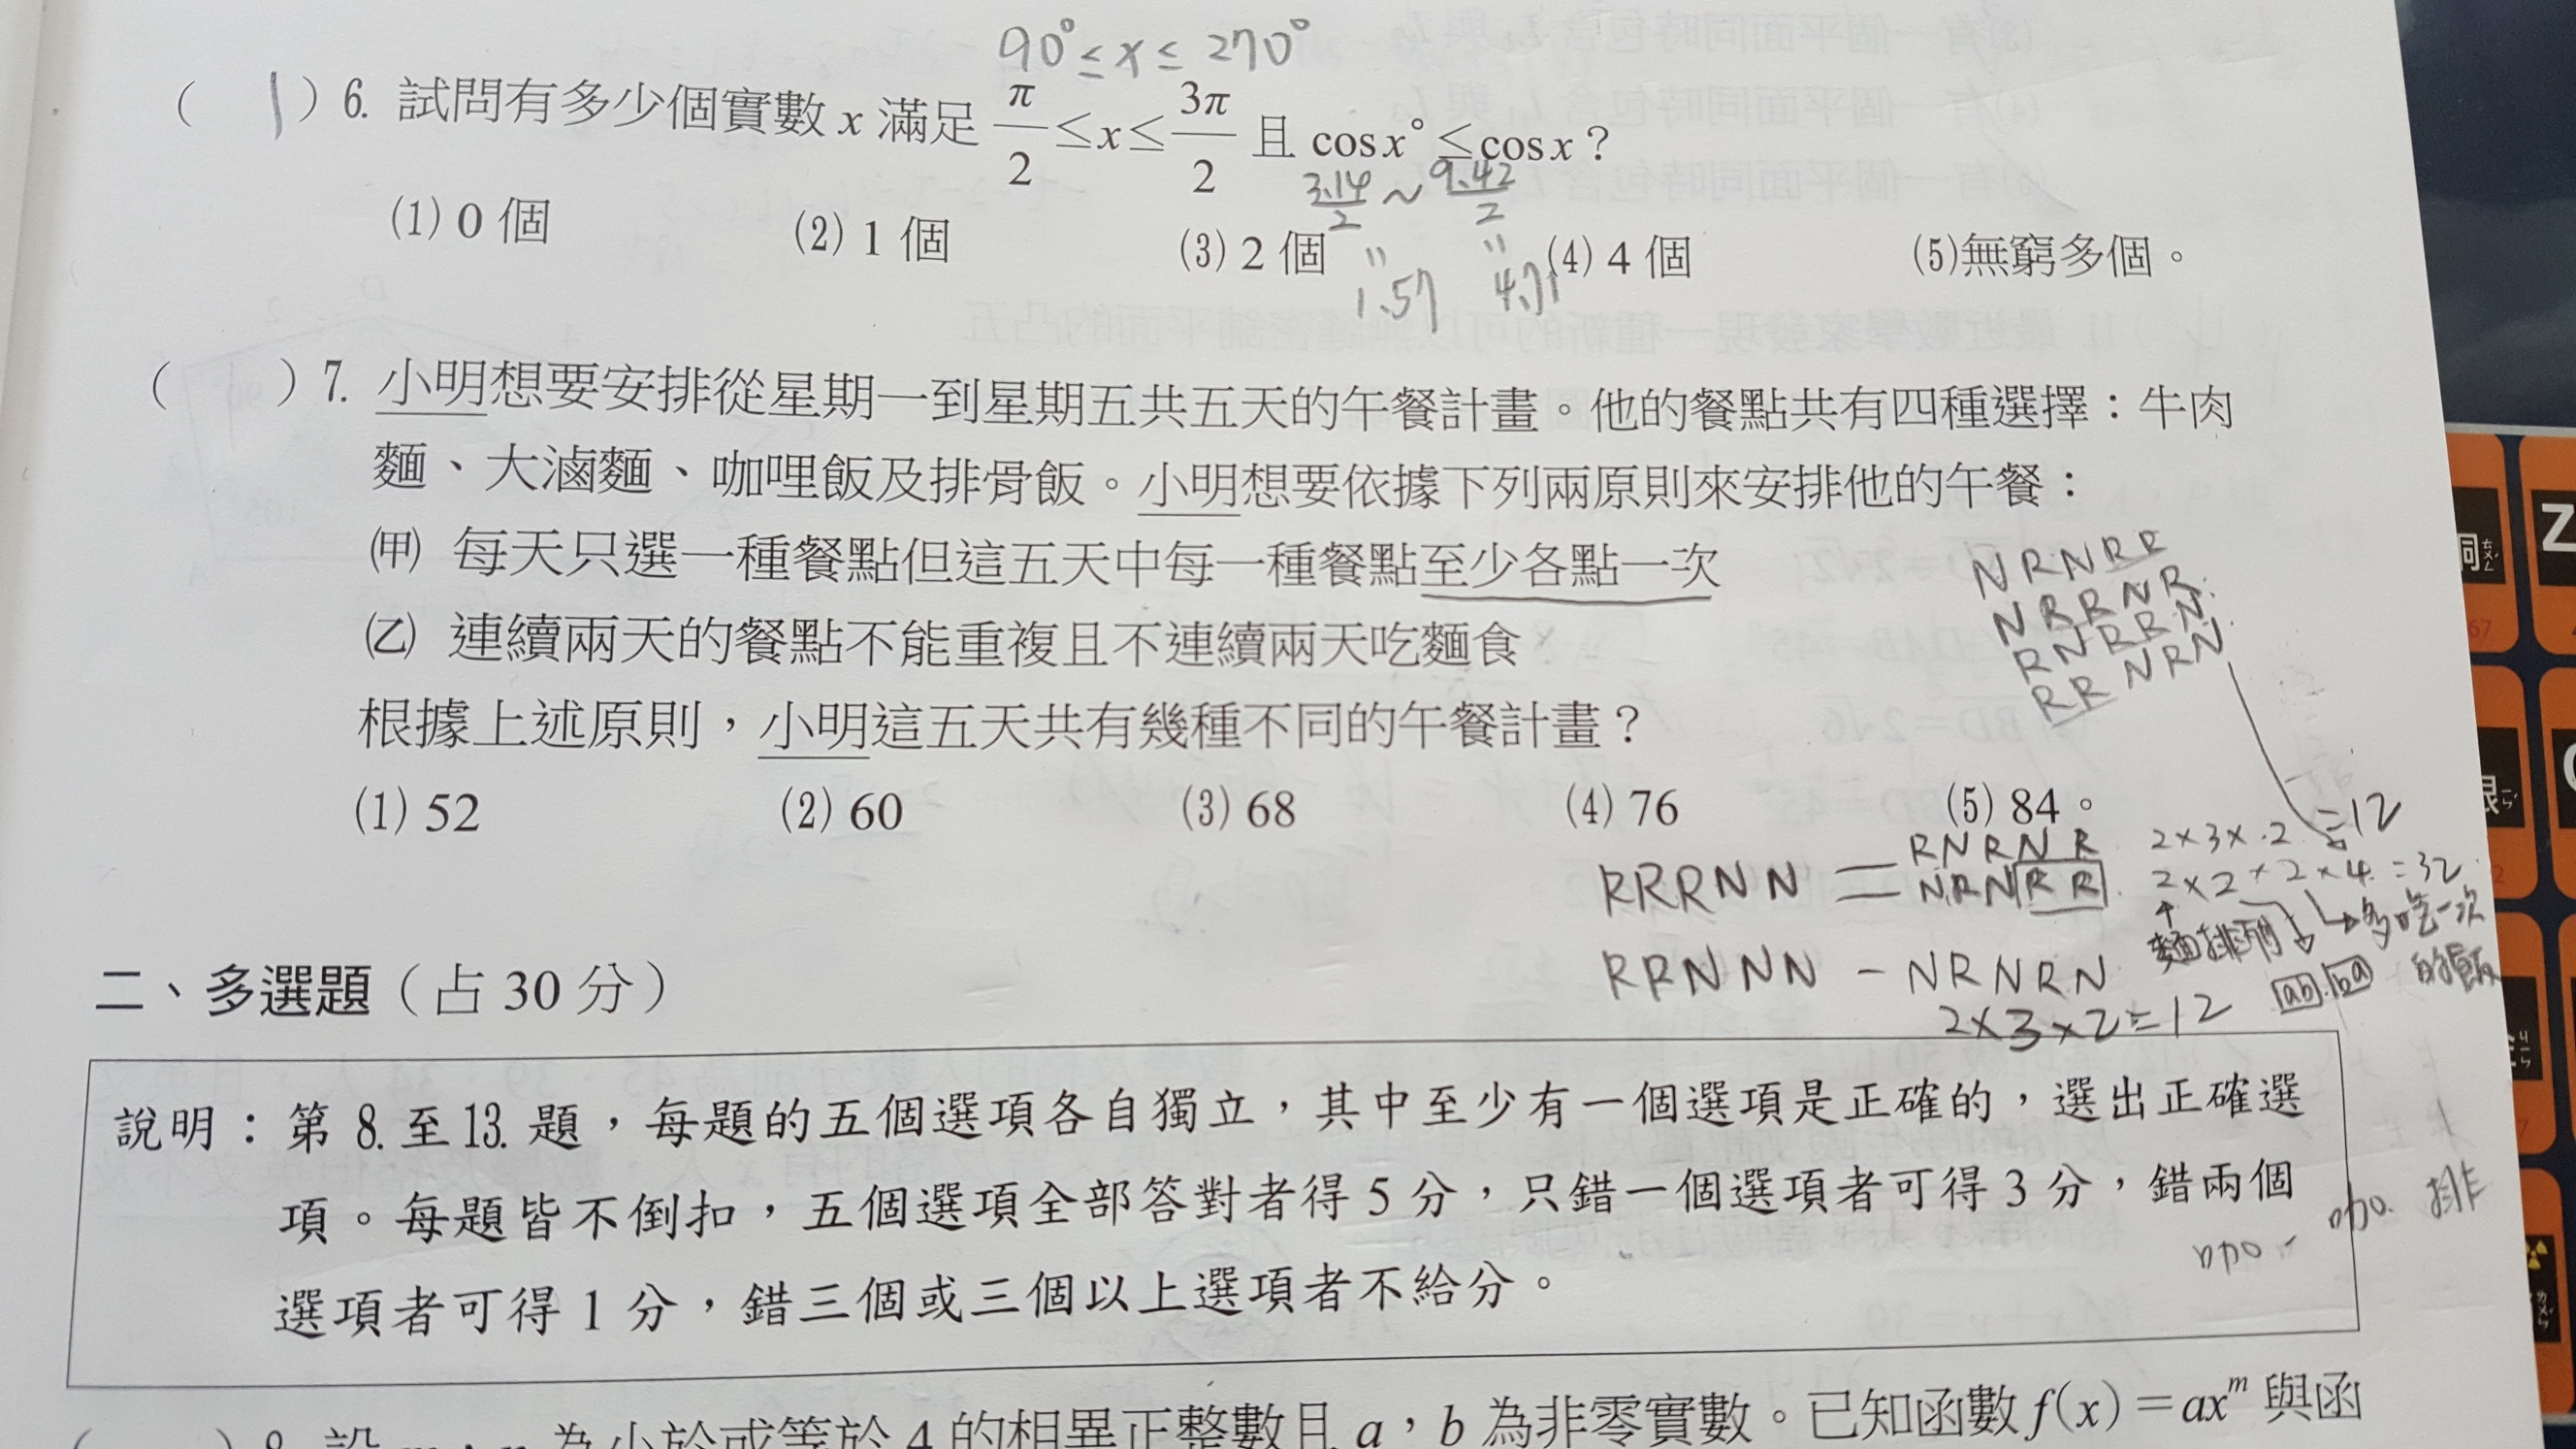 90°≤x≤270°
( 1 ) 6. 試問有多少個實數 x 滿足 π/2 ≤x≤ 3π/2 且 cosx°≤cosx？
3.14/2 ~ 9.42/2
(1) 0 個 (2) 1 個 (3) 2 個 (4) 4 個 (5)無窮多個。
" "
1.57 4.71
( ) 7. 小明想要安排從星期一到星期五共五天的午餐計畫。他的餐點共有四種選擇：牛肉
麵、大滷麵、咖哩飯及排骨飯。小明想要依據下列兩原則來安排他的午餐：
(甲) 每天只選一種餐點但這五天中每一種餐點至少各點一次
(乙) 連續兩天的餐點不能重複且不連續兩天吃麵食
根據上述原則，小明這五天共有幾種不同的午餐計畫？
NRNRR
NRRNR
RNRRN
RRNRN
(1) 52 (2) 60 (3) 68 (4) 76 (5) 84。
RNRNR 2×3×2 =12
RRRNN = NRNRR 2×2×2×4=32
麵排列 多吃一次
的飯
ab ba
RRNNN - NRNRN
2×3×2=12
二、多選題（占 30 分）
說明：第 8. 至 13. 題，每題的五個選項各自獨立，其中至少有一個選項是正確的，選出正確選
項。每題皆不倒扣，五個選項全部答對者得 5 分，只錯一個選項者可得 3 分，錯兩個
選項者可得 1 分，錯三個或三個以上選項者不給分。
咖. 排
咖
為小於或等於 4 的相異正整數且 a，b 為非零實數。已知函數 f(x)＝axᵐ 與函
Z